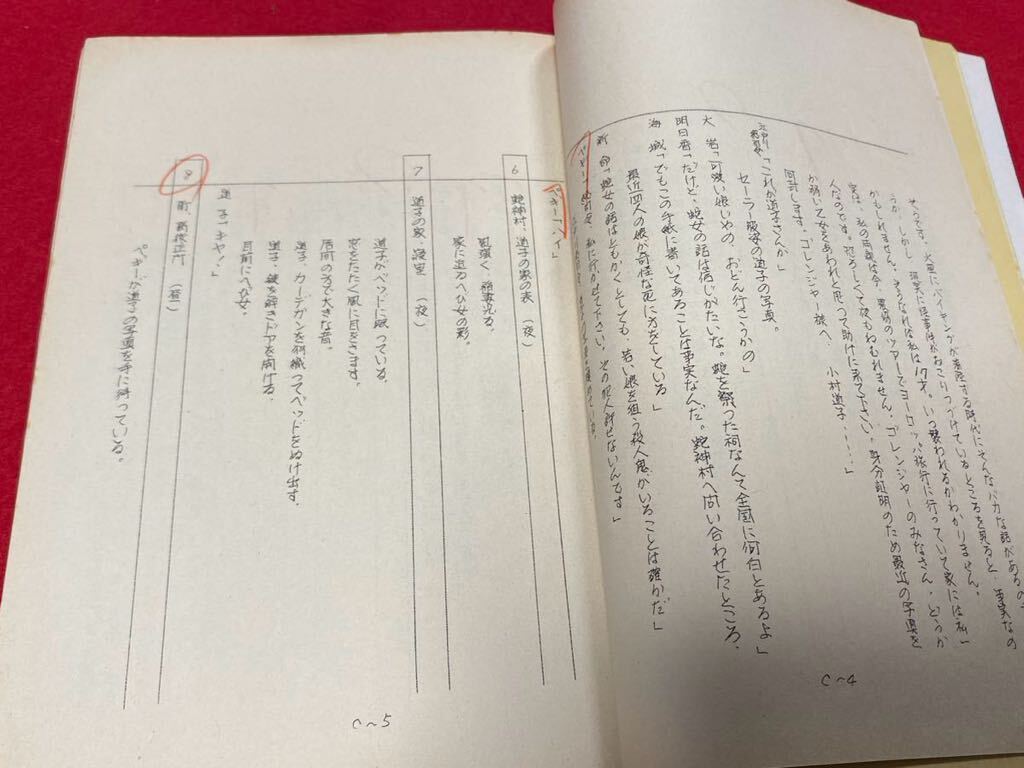 そうです。火星にバイキングが着陸する時代にそんなバカな話があるの
うか。しかし、現実に怪事件がおこりつづけているところを見ると、事実なの
かもしれません。そうなれば私は17才。いつ襲われるかわかりません。
実は、私の両親は今、農協のツアーでヨーロッパ旅行に行っていて家には私一
人なのです。恐ろしくて夜もねむれません。ゴレンジャーのみなさん、どうか
か弱い乙女をあわれと思って助けに来て下さい。身分証明のため最近の写真を
同封します。ゴレンジャー様へ。 小村道子・・・・」
「これが道子さんか」
セーラー服姿の道子の写真。
大岩「可愛い娘いやの、おどん行こうかの」
明日香「だけど、蛇女の話は信じがたいな。蛇を祭った祠なんて全国に何百とあるよ」
海城「でもこの手紙に書いてあることは事実なんだ。蛇神村へ問い合わせたところ、
最近四人の娘が奇怪な死に方をしている」
新命「蛇女の話はともかくとしても、若い娘を狙う殺人鬼がいることは確かだ」
ペギー 私に行かせて下さい。その犯人許せないんです」
C〜4
ペギー「ハイ」
6 蛇神村、道子の家の表(夜)
風強く、稲妻光る。
家に迫るへび女の影。
7 道子の家・寝室 (夜)
道子がベッドに眠っている。
窓をたたく風に目をさます。
居間の方で大きな音。
道子、カーデガンを羽織ってベッドをぬけ出す。
道子、鍵を解きドアを開ける。
目前にへび女。
道子「キャー!」
8 町、商検証所 (昼)
ペギーが道子の写真を手に待っている。
C〜5